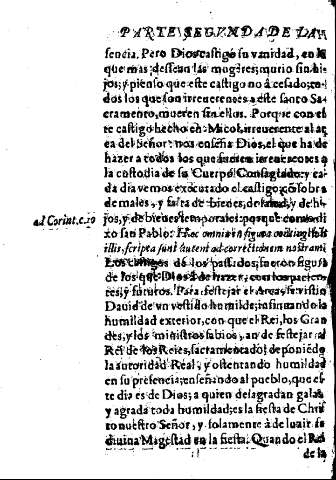 PARTE SEGVNDA DE LA
sencia. Pero Dios castigò su vanidad, en lo
que mas dessean las mugeres; murio sin hi-
jos; y pienso que este castigo no à cesado; to-
dos los que son irreuerentes a este santo Sa-
cramento, mueren sin ellos. Porque con el-
te castigo hecho en Micol, irreuerente al ar-
ca del Señor: nos enseña Dios, el que ha de
hazer a todos los que fueren irreuerentes a
la custodia de su Cuerpo Consagrado: y ca-
da dia vemos executado el castigo, cõ sobra
de males, y falta de bienes, de salud, y de hi-
jos, y de bienes temporales: porque como di-
ad Corint. c. 10
xo san Pablo: Hæc omnia in figura contingebãt
illis, scripta sunt autem ad correctionem nostram.
Los castigos de los passados, fueron figura
de los que Dios à de hazer, con los
tes, y futuros. Para festejar el Arca, se vistio
Dauid de vn vestido humilde; insinuando la
humildad exterior, con que el Rei, los Gran
des, y los ministros sabios, an de festejar al
Rei de los Reies, sacramentado; deponiẽdo
la autoridad Real, y ostentando humildad
en su presencia; enseñando al pueblo, que es-
te dia es de Dios; a quien desagradan galas
y agrada toda humildad; es la fiesta de Chris
to nuestro Señor, y solamente à de luzir su
diuina Magestad en la fiesta. Quando el Rei
de la